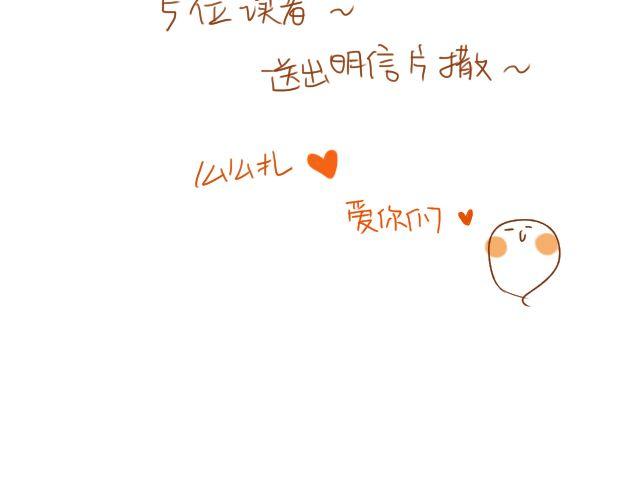 5位读者~
送出明信片撒~
么么扎
爱你们